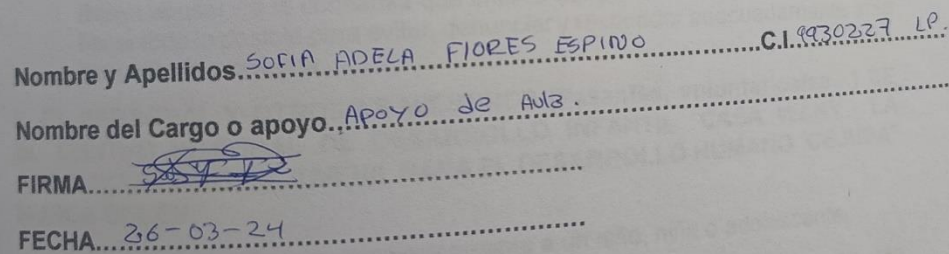 Nombre y Apellidos. SOFIA ADELA FLORES ESPINO C.I. 9930227 LP.
Nombre del Cargo o apoyo.. APOYO de AULA.
FIRMA
FECHA 26-03-24